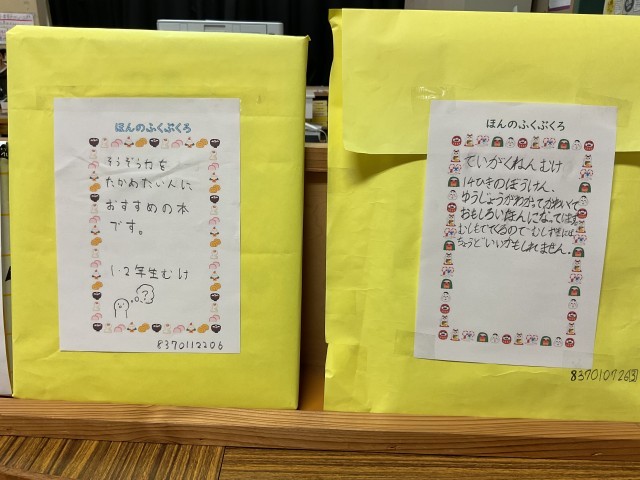 ほんのふくぶくろ
そうぞう力を
たかめたい人に
おすすめの本
です。
1・2年生むけ
?
8370112206
ほんのふくぶくろ
ていがくねんむけ
14ひきのぼうけん、
ゆうじょうがわかってかわいくて
おもしろいほんになってはず
むしもでてくるので
ちょうどいいかもしれません。
837010726③